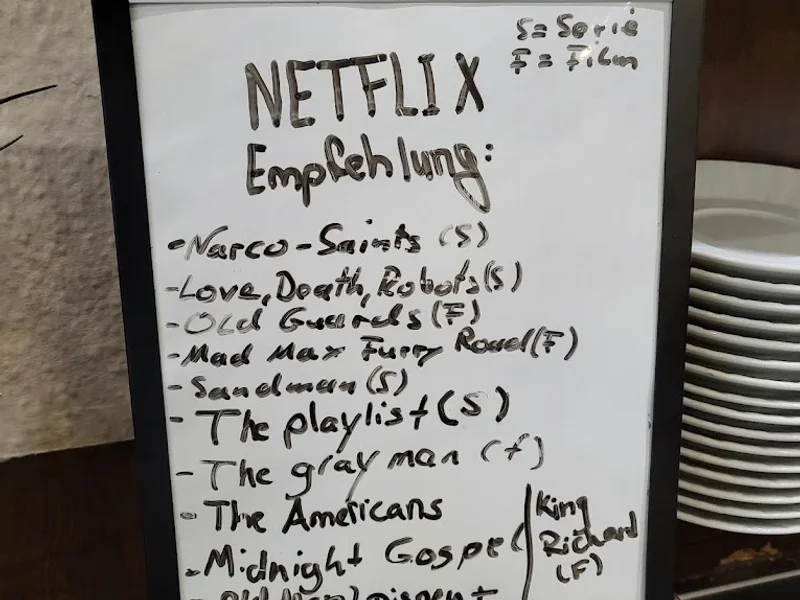 S = Serie
F = Film
NETFLIX
Empfehlung:
- Narco-Saints (S)
- Love, Death, Robots (S)
- Old Guards (F)
- Mad Max Furry Road (F)
- Sandman (S)
- The playlist (S)
- The gray man (f)
- The Americans
- Midnight Gospel
King
Richard
(F)